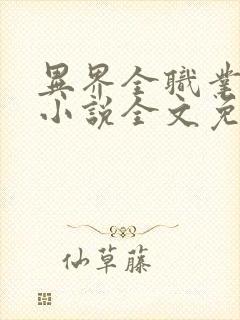 異界全職業
小說全文免
仙草藤